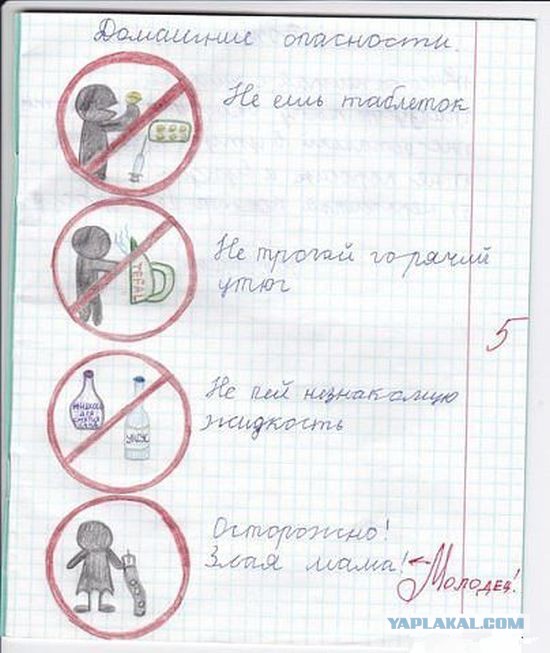 Домашние опасности.
Не ешь таблеток
Не трогай горячий
утюг
TEFAL
5
Не пей незнакомую
жидкость
жидкость
для
снятия
лака
УКСУС
Осторожно!
Злая мама!
Молодец!
YAPLAKAL.COM